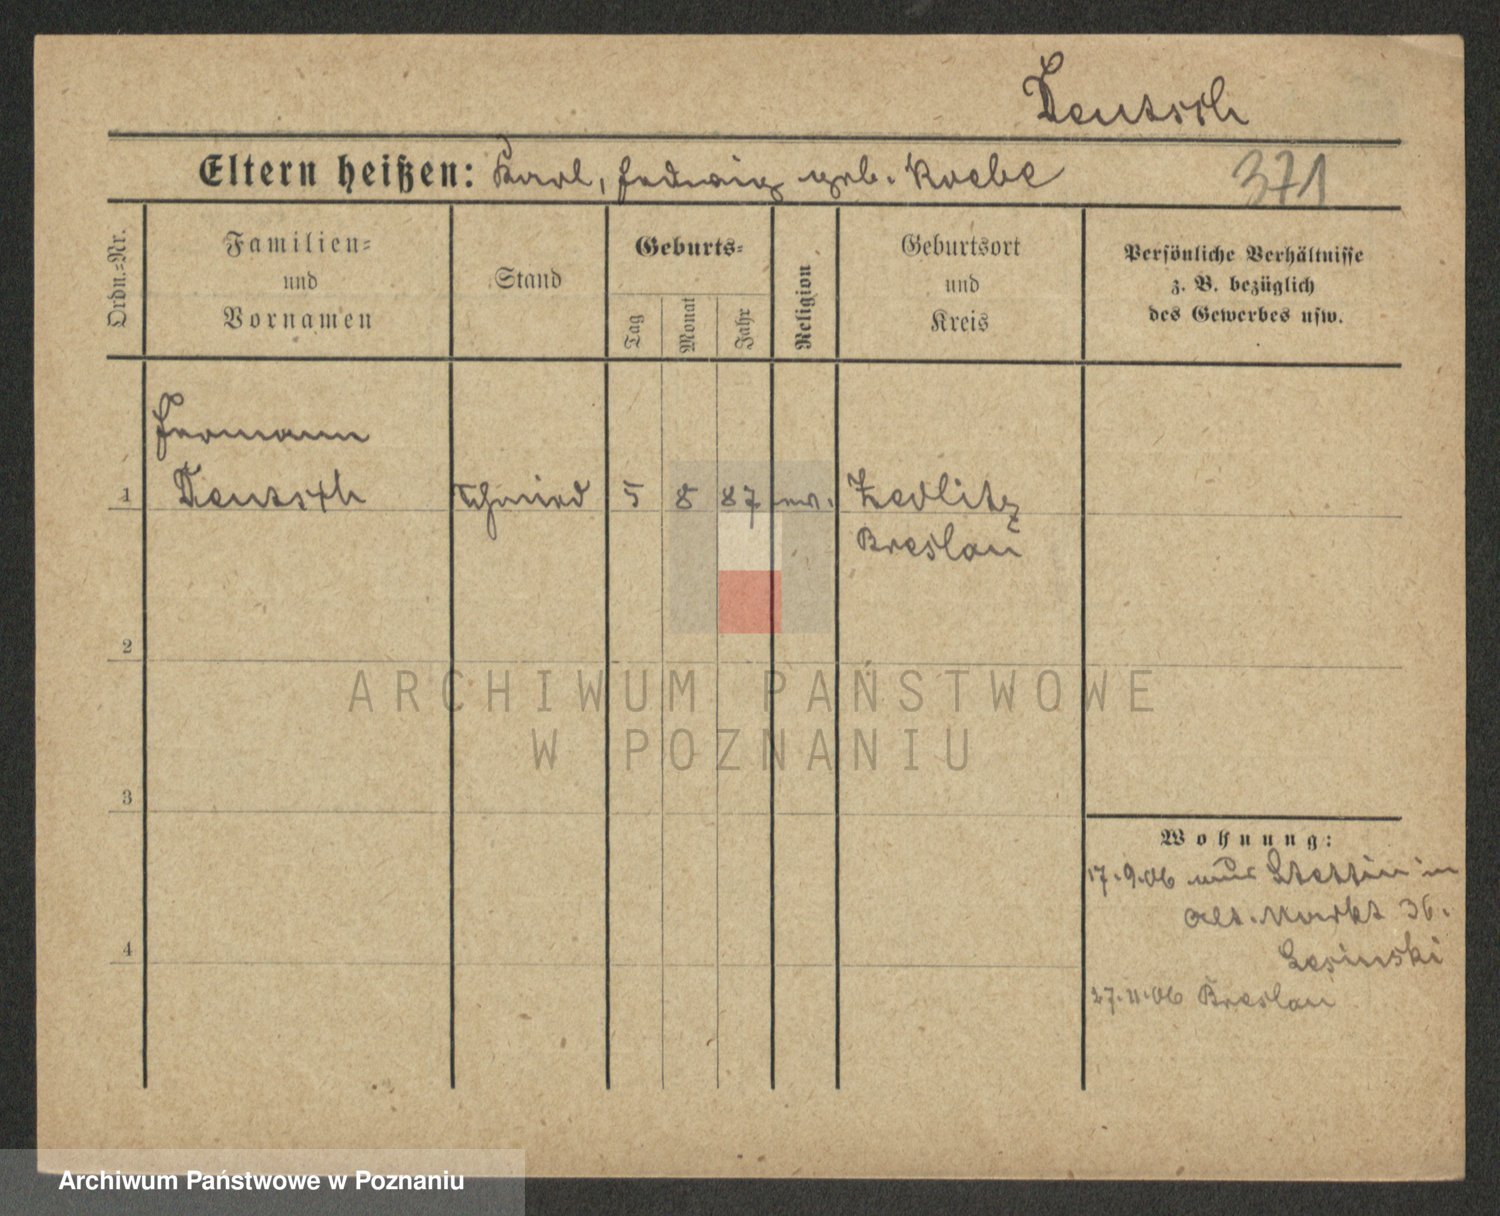 Deutsch
Eltern heißen: Karl, Hedwig geb. Koebe
371
Ordn.=Nr.
Familien=
und
Vornamen
Stand
Geburts=
Tag
Monat
Jahr
Religion
Geburtsort
und
Kreis
Persönliche Verhältnisse
z. B. bezüglich
des Gewerbes usw.
Hermann
1 Deutsch Schmied 5 8 87 ev. Zedlitz
Breslau
2
3
4
ARCHIWUM PAŃSTWOWE
W POZNANIU
Wohnung:
17.9.06 aus Stettin in
Alt. Markt 36.
Lesinski
27.11.06 Breslau
Archiwum Państwowe w Poznaniu